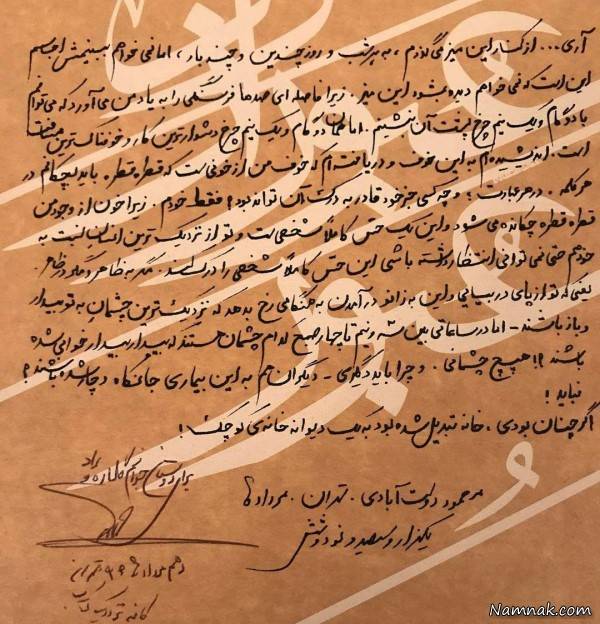 آری... از کنار این میز می‌گذرم، به هر شب و روز چندین و چند بار، اما نمی‌خواهم ببینمش
این است که نمی‌خواهم دیده بشود این میز. زیرا فاصله‌ای صدها فرسنگی را به یاد من می‌آورد که می‌توانم
با دو گام و یک نیم چرخ پشت آن بنشینم. اما همان دو گام و یک نیم چرخ دشوارترین کار و خوفناک‌ترین
است. اندیشیده‌ام به این خوف و دریافته‌ام که خوف من از خونی‌ست که قطره قطره باید بچکانم در
هر کلمه. در هر عبارت؛ و چه کسی جز خود قادر به درک آن تواند بود؟ فقط خودم. زیرا خون از وجود من
قطره قطره چکانده می‌شود و این یک حس کاملاً شخصی‌ست و تو از نزدیک‌ترین انسان نسبت به
خودم حتی نمی‌توانی انتظار داشته باشی این حس کاملاً شخصی را درک کند. مگر به ظاهر و گیرم در ظاهر.
یعنی که تو از پای در بیایی و این به زانو درآمدن به هنگامی رخ بدهد که نزدیک‌ترین چشمان به تو بیدار
و باز باشند - اما در ساعاتی بین سه و نیم تا چهار صبح کدام چشمان هستند که بیدار بیدار خوابی شده
باشند؟! هیچ چشمانی. و چرا باید دیگری - دیگران هم به این بیماری جانکاه دچار شده باشند؟
نباید!
اگر چنان بودی، خانه تبدیل شده بود به یک دیوانه خانه‌ی کوچک!
محمود دولت آبادی. تهران. مرداد ماه
یکهزار و سیصد و نود و شش
برای دوستان
دهم مرداد ماه ۹۶ تهران
Namnak.com